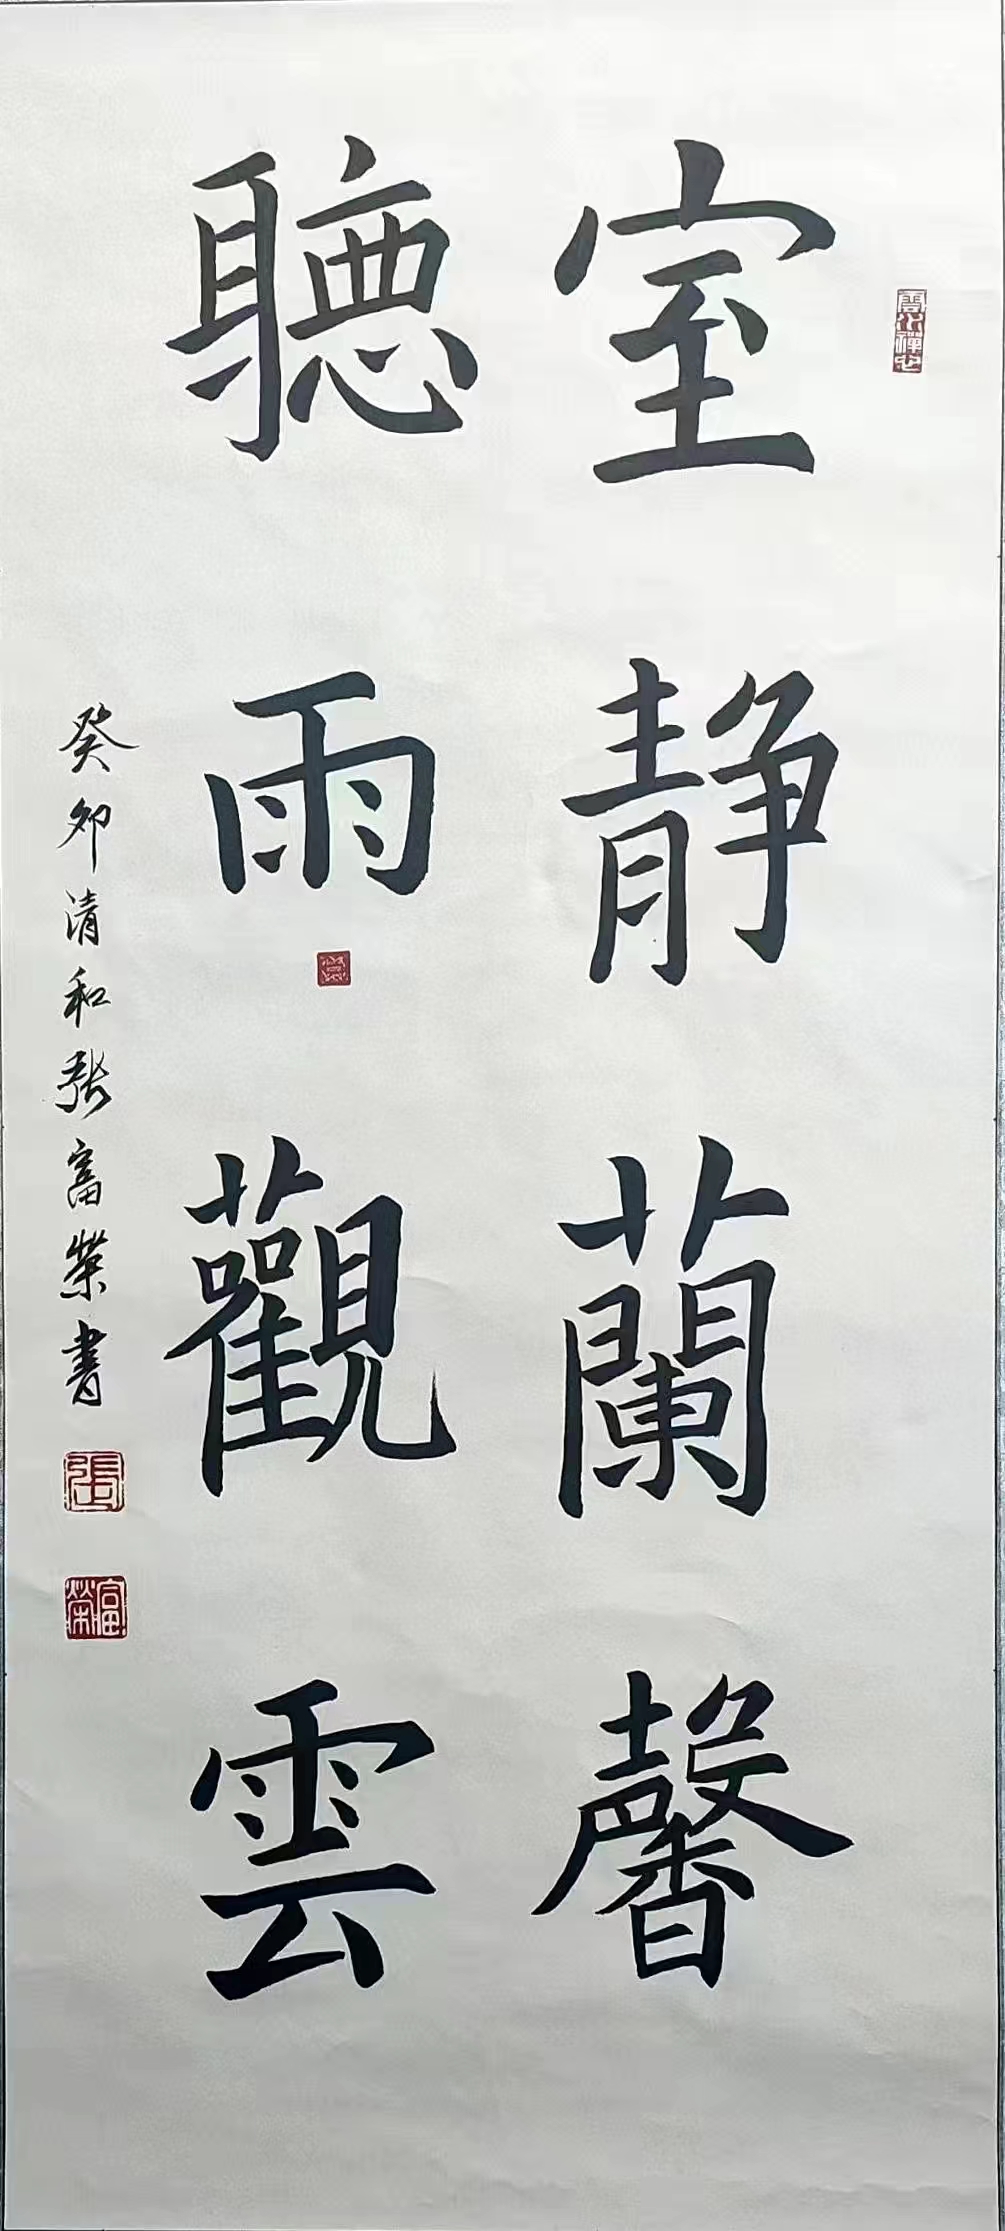 室静蘭馨
聽雨觀雲
癸卯清和張富榮書
張
富榮